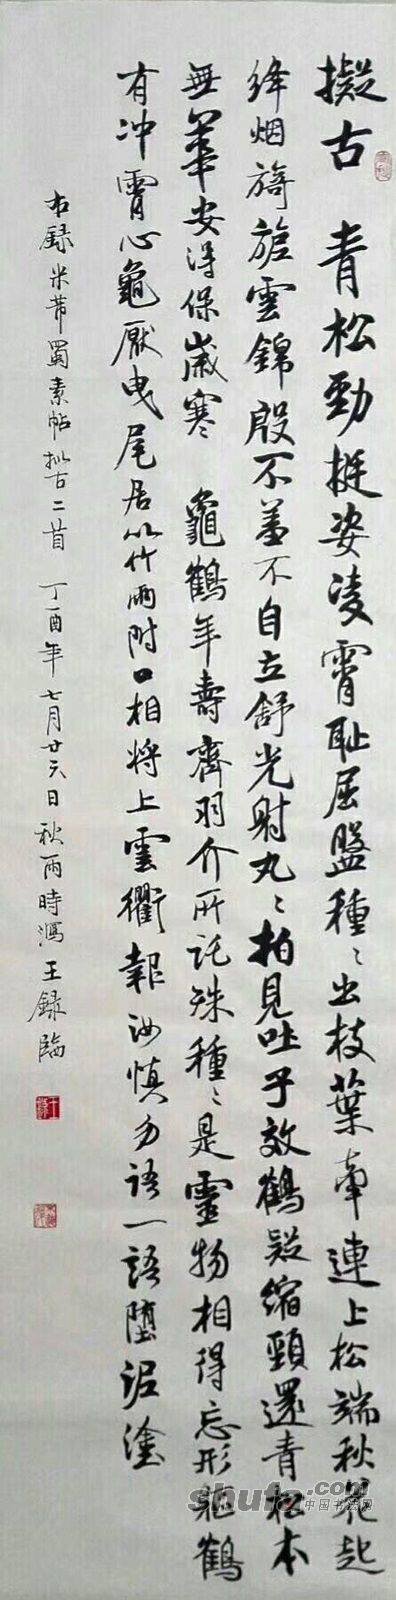 擬古 青松勁挺姿凌霄耻屈盤種〻出枝葉牽連上松端秋花起
絳烟旖旎雲錦殷不羞不自立舒光射丸〻柏見吐子效鶴疑縮頸還青松本
無華安得保歲寒 龜鶴年壽齊羽介所託殊種〻是靈物相得忘形軀鶴
有冲霄心龜厭曳尾居以竹兩附口相將上雲衢報汝慎勿語一語墮泥塗
右録米芾蜀素帖擬古二首 丁酉年七月廿六日秋雨時瀉王録臨
shufa.com
中国书法网